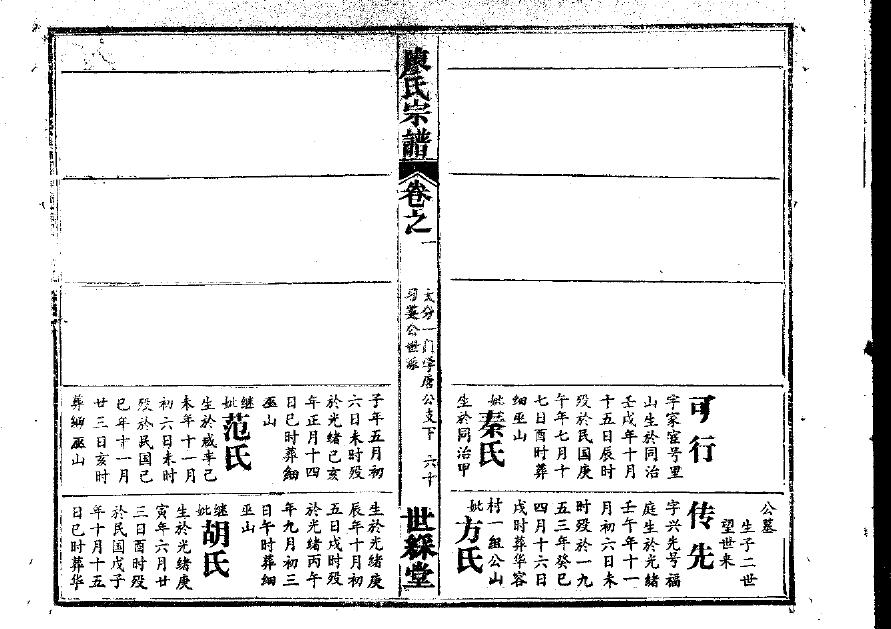 公墓
生子二世
望世来
可行
字家宦号里
山生於同治
壬戌年十月
十五日辰时
殁於民国庚
午年七月十
七日酉时葬
细巫山
妣秦氏
生於同治甲
传先
字兴先号福
庭生於光緒
壬午年十一
月初六日未
时殁於一九
五三年癸巳
四月十六日
戌时葬华容
村一組公山
妣方氏
廖氏宗譜
卷之一
大分一门学唐公支下 六十
世綵堂
子年五月初
六日未时殁
於光緒己亥
年正月十四
日巳时葬細
巫山
继妣范氏
生於咸丰己
未年十一月
初六日未时
殁於民国己
巳年十一月
廿三日亥时
葬細巫山
生於光緒庚
辰年十月初
五日戌时殁
於光緒丙午
年九月初三
日午时葬細
巫山
继妣胡氏
生於光緒庚
寅年六月廿
三日酉时殁
於民国戊子
年十月十五
日巳时葬华